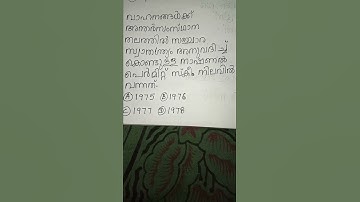 വാഹനങ്ങൾക്ക്
അന്തർസംസ്ഥാന
തലത്തിൽ സഞ്ചാര
സ്വാതന്ത്ര്യം അനുവദിച്ച്
കൊണ്ടുള്ള നാഷണൽ
പെർമിറ്റ് സ്കീം നിലവിൽ
വന്നത്.
Ⓐ 1975 Ⓑ 1976
Ⓒ 1977 Ⓓ 1978